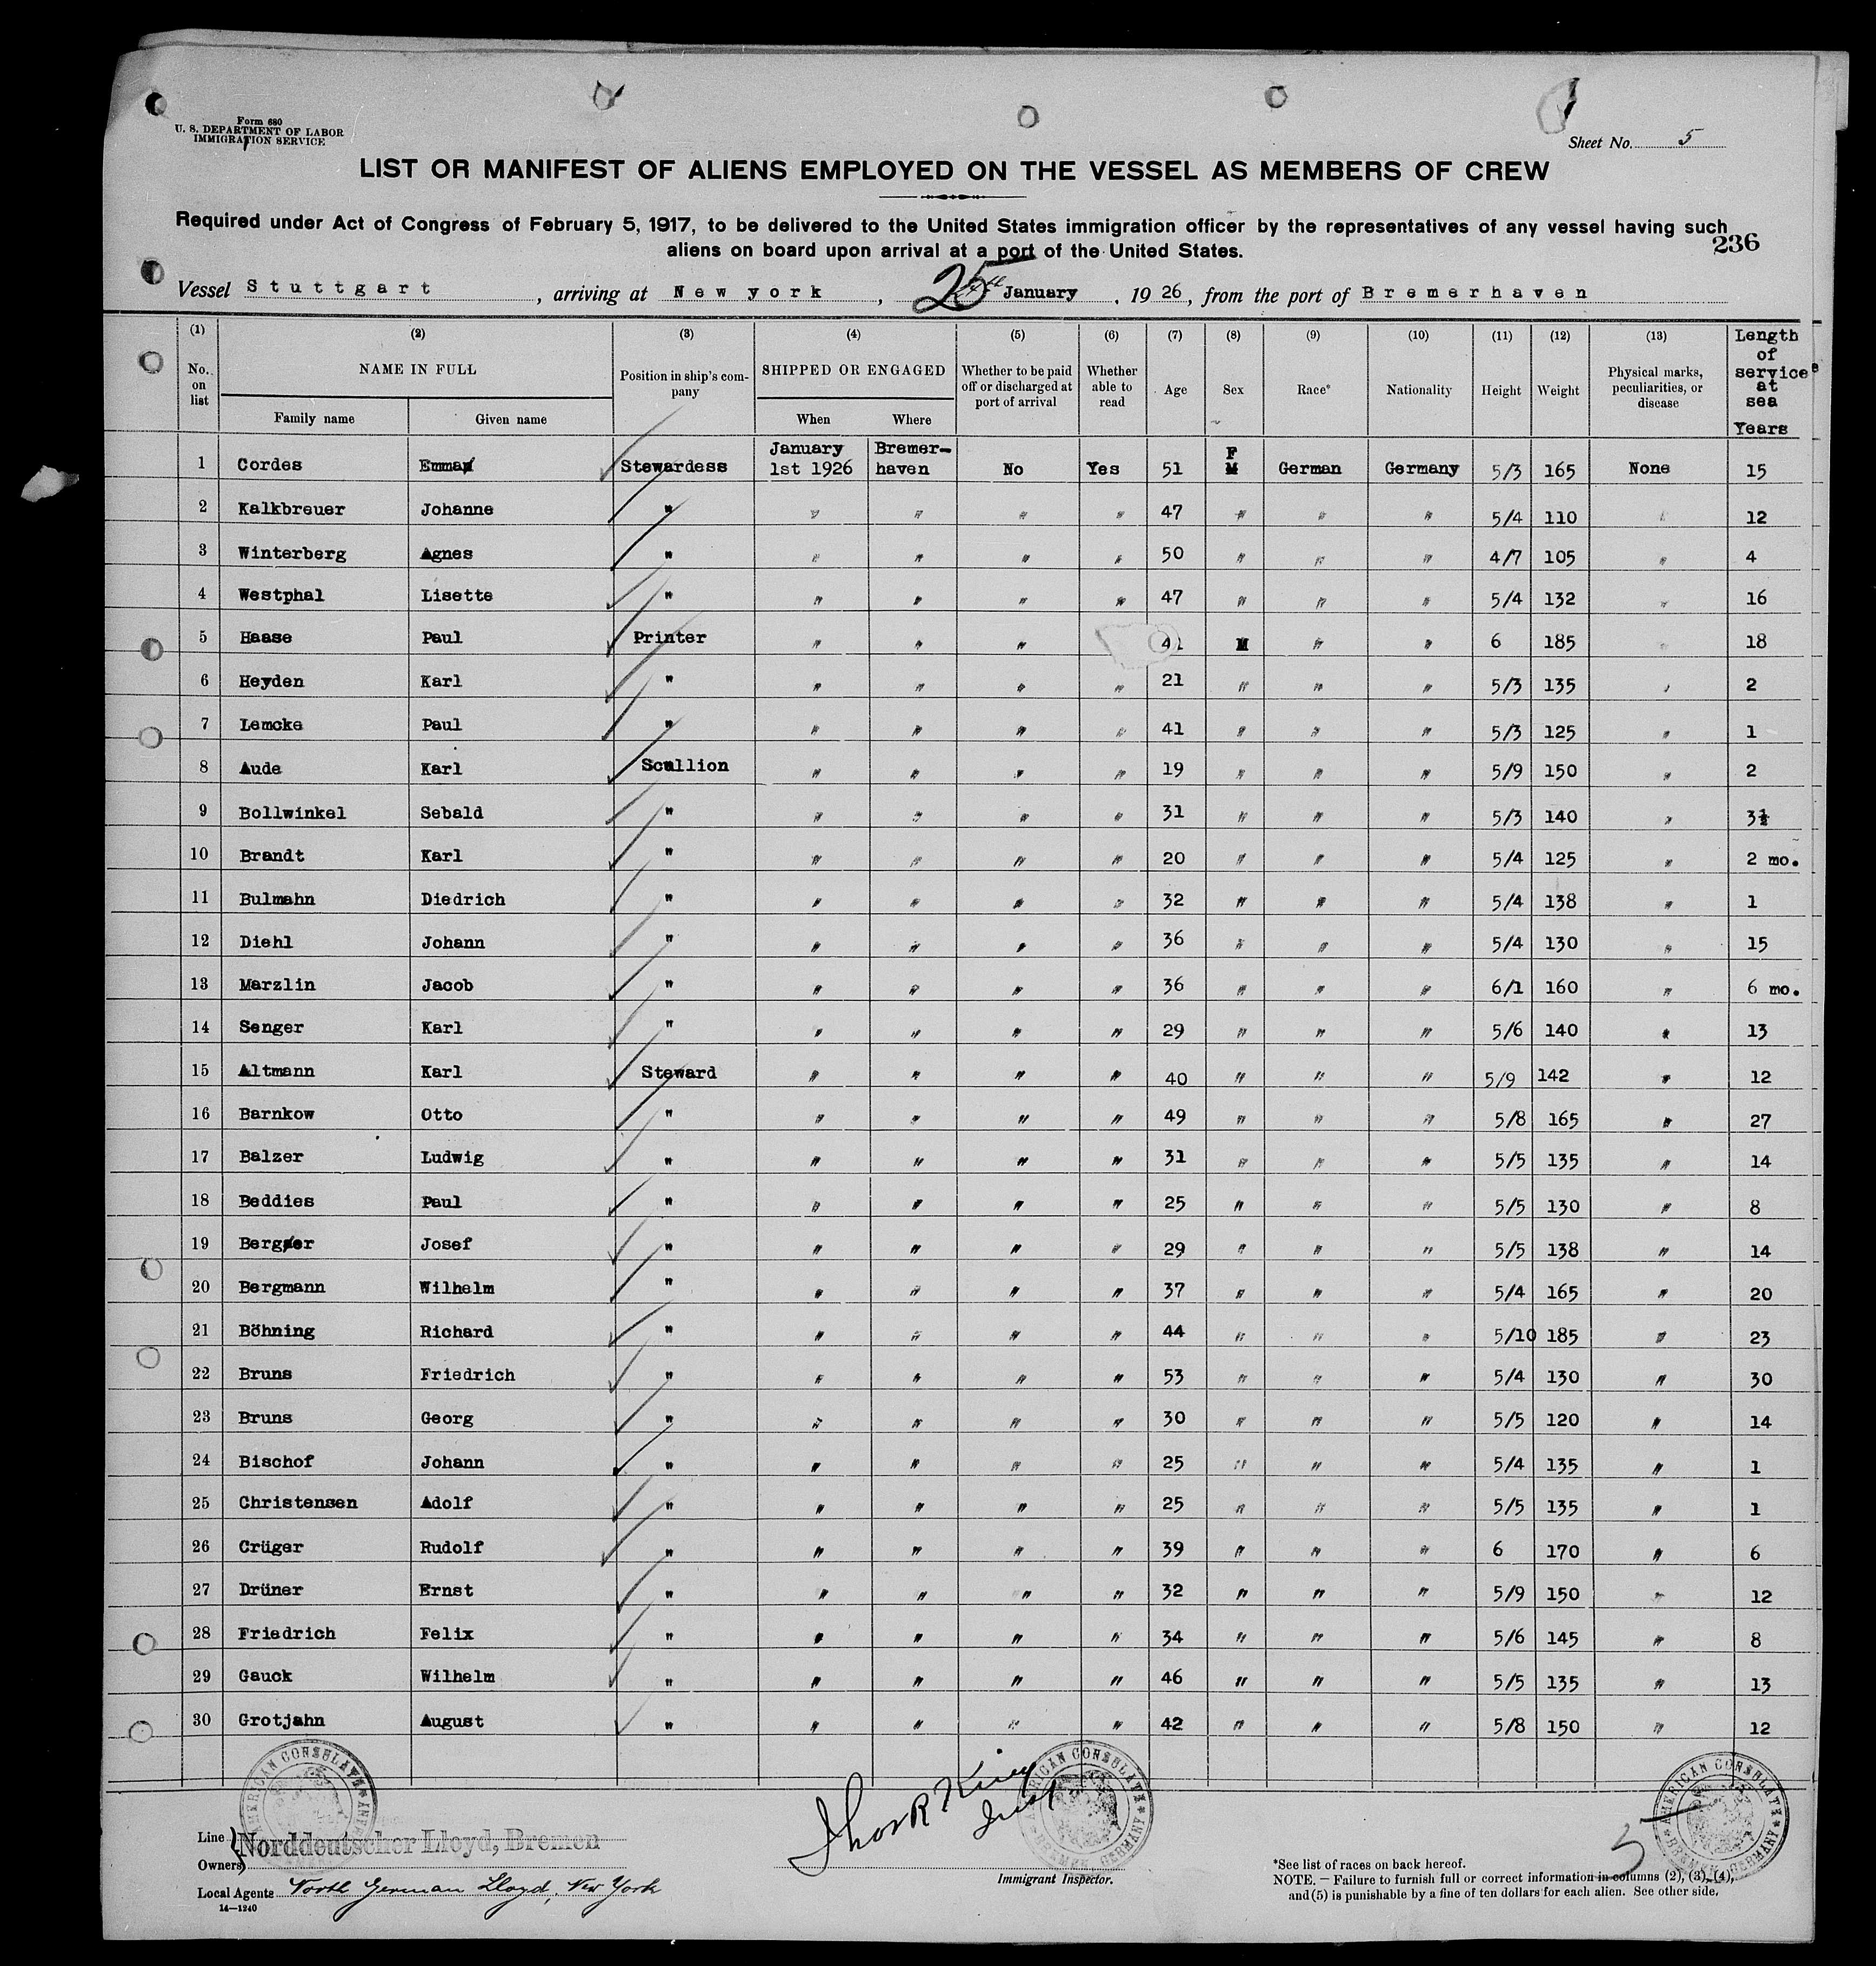 Form 680
U. S. DEPARTMENT OF LABOR
IMMIGRATION SERVICE
Sheet No. 5
LIST OR MANIFEST OF ALIENS EMPLOYED ON THE VESSEL AS MEMBERS OF CREW
Required under Act of Congress of February 5, 1917, to be delivered to the United States immigration officer by the representatives of any vessel having such
aliens on board upon arrival at a port of the United States.
236
Vessel Stuttgart, arriving at New york, 25th January, 1926, from the port of Bremerhaven
(1) (2) (3) (4) (5) (6) (7) (8) (9) (10) (11) (12) (13) Length of service at sea Years
No. on list NAME IN FULL Position in ship's company SHIPPED OR ENGAGED Whether to be paid off or discharged at port of arrival Whether able to read Age Sex Race* Nationality Height Weight Physical marks, peculiarities, or disease
Family name Given name When Where
1 Cordes Emma Stewardess January 1st 1926 Bremer-haven No Yes 51 F German Germany 5/3 165 None 15
2 Kalkbreuer Johanne " " " " " 47 " " " 5/4 110 " 12
3 Winterberg Agnes " " " " " 50 " " " 4/7 105 " 4
4 Westphal Lisette " " " " " 47 " " " 5/4 132 " 16
5 Haase Paul Printer " " " 41 M " " 6 185 " 18
6 Heyden Karl " " " " " 21 " " " 5/3 135 " 2
7 Lemcke Paul " " " " " 41 " " " 5/3 125 " 1
8 Aude Karl Scullion " " " " 19 " " " 5/9 150 " 2
9 Bollwinkel Sebald " " " " " 31 " " " 5/3 140 " 3½
10 Brandt Karl " " " " " 20 " " " 5/4 125 " 2 mo.
11 Bulmahn Diedrich " " " " " 32 " " " 5/4 138 " 1
12 Diehl Johann " " " " " 36 " " " 5/4 130 " 15
13 Marzlin Jacob " " " " " 36 " " " 6/1 160 " 6 mo.
14 Senger Karl " " " " " 29 " " " 5/6 140 " 13
15 Altmann Karl Steward " " " " 40 " " " 5/9 142 " 12
16 Barnkow Otto " " " " " 49 " " " 5/8 165 " 27
17 Balzer Ludwig " " " " " 31 " " " 5/5 135 " 14
18 Beddies Paul " " " " " 25 " " " 5/5 130 " 8
19 Berger Josef " " " " " 29 " " " 5/5 138 " 14
20 Bergmann Wilhelm " " " " " 37 " " " 5/4 165 " 20
21 Böhning Richard " " " " " 44 " " " 5/10 185 " 23
22 Bruns Friedrich " " " " " 53 " " " 5/4 130 " 30
23 Bruns Georg " " " " " 30 " " " 5/5 120 " 14
24 Bischof Johann " " " " " 25 " " " 5/4 135 " 1
25 Christensen Adolf " " " " " 25 " " " 5/5 135 " 1
26 Crüger Rudolf " " " " " 39 " " " 6 170 " 6
27 Drüner Ernst " " " " " 32 " " " 5/9 150 " 12
28 Friedrich Felix " " " " " 34 " " " 5/6 145 " 8
29 Gauck Wilhelm " " " " " 46 " " " 5/5 135 " 13
30 Grotjahn August " " " " " 42 " " " 5/8 150 " 12
AMERICAN CONSULATE BREMEN GERMANY
AMERICAN CONSULATE BREMEN GERMANY
AMERICAN CONSULATE BREMEN GERMANY
Line Owners Norddeutscher Lloyd, Bremen
Local Agents North German Lloyd, New York
14—1240
Immigrant Inspector.
5
*See list of races on back hereof.
NOTE. — Failure to furnish full or correct information in columns (2), (3), (4),
and (5) is punishable by a fine of ten dollars for each alien. See other side.